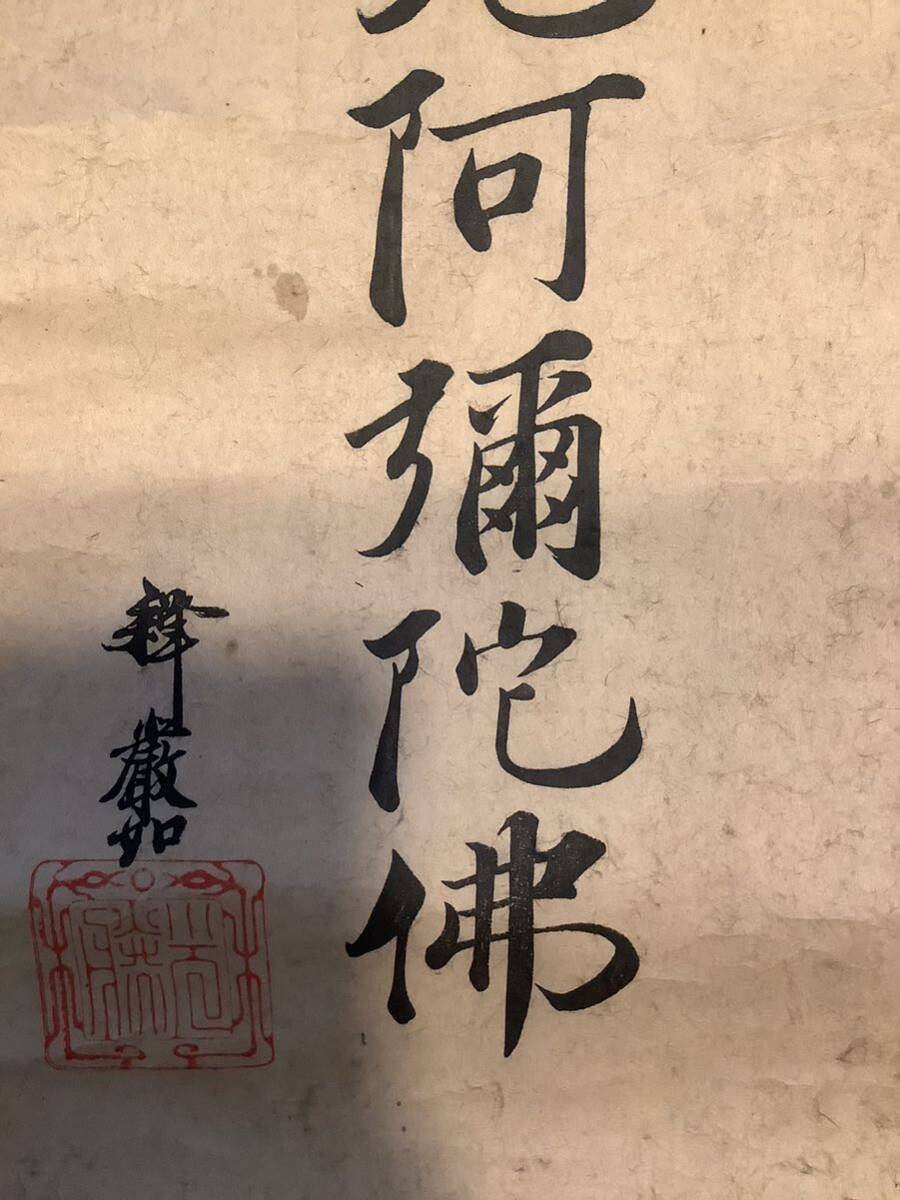 阿彌陀佛
釋嚴如